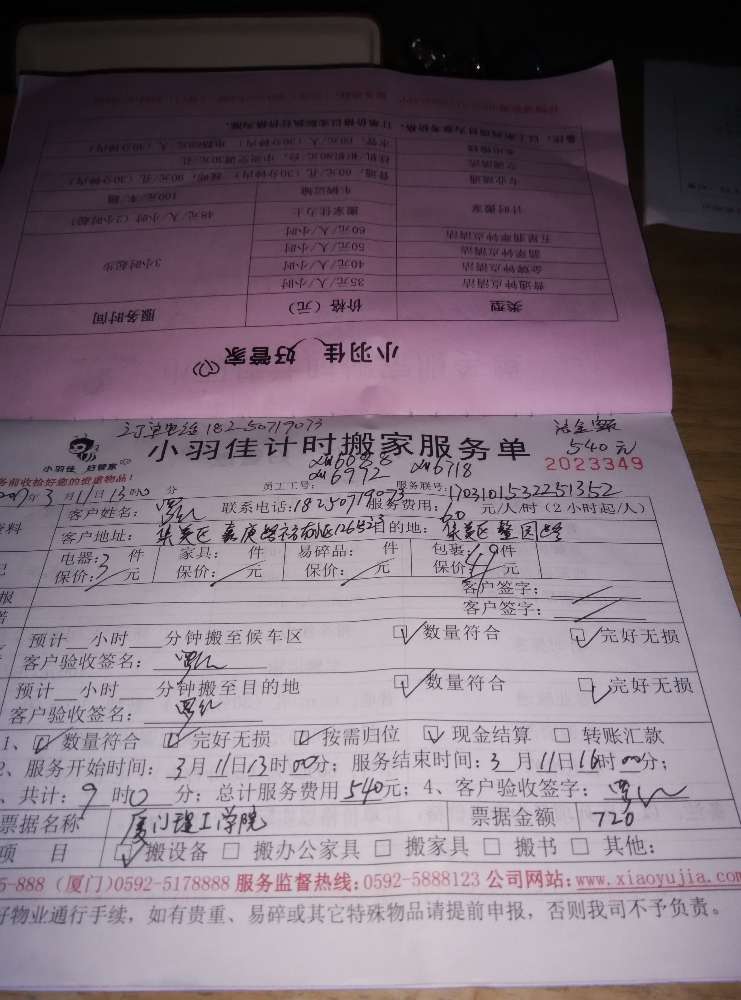 小羽佳 好管家
类型 价格（元） 服务时间
普通钟点清洁 35元/人/小时
金牌钟点清洁 40元/人/小时 3小时起步
翡翠钟点清洁 50元/人/小时
五星翡翠钟点清洁 60元/人/小时
计时搬家 搬家佳力士 48元/人/小时（2小时起）
车辆运输 100元/车/趟
专业疏通 普通，60元/次（30分钟内）
空调清洗
水电维修
备注：以上单项目为参考价格，订单价格以实际执行价格为准。
订单电话 18250719073
小羽佳计时搬家服务单
540元
小羽佳 好管家
xm6088
xm6992 xm6718
2023349
务前收检好您的贵重物品！
2017年3月11日13时00分 员工工号： 服务联号：1703101532251352
客户姓名： 联系电话：18250719073 服务费用：60元/人/时（2小时起/人）
客户地址：集美区 目的地：集美区
电器：3件 家具： 件 易碎品： 件 包裹：49件
保价： 元 保价： 元 保价： 元 保价： 元
客户签字：
客户签字：
预计 小时 分钟搬至候车区 数量符合 完好无损
客户验收签名：
预计 小时 分钟搬至目的地 数量符合 完好无损
客户验收签名：
1、 数量符合 完好无损 按需归位 现金结算 转账汇款
2、服务开始时间：3月11日13时00分；服务结束时间：3月11日16时00分；
共计：9时0分；总计服务费用540元；4、客户验收签字：
票据名称 厦门理工学院 票据金额 720
项 目 搬设备 搬办公家具 搬家具 搬书 其他：
5-888（厦门）0592-5178888 服务监督热线：0592-5888123 公司网站：www.xiaoyujia.com
好物业通行手续，如有贵重、易碎或其它特殊物品请提前申报，否则我司不予负责。